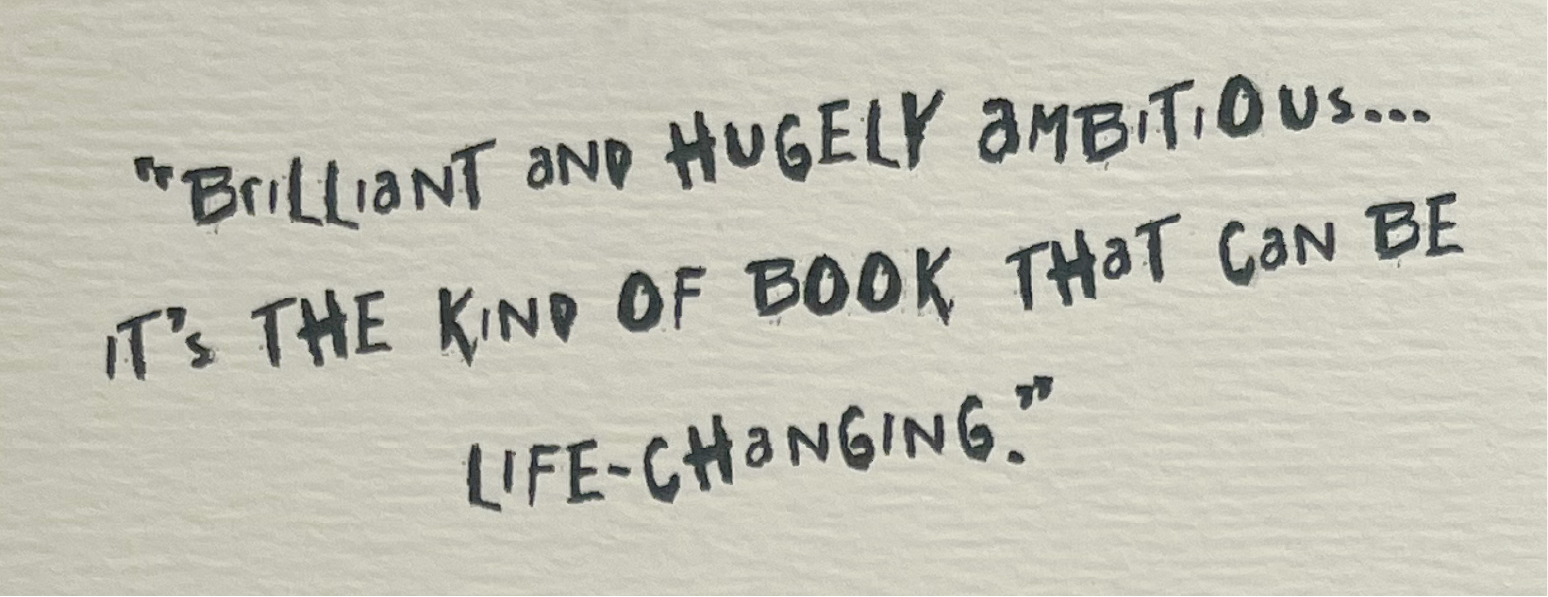 "BriLLiaNT aND HUGELY aMBiTiOUs...
iT's THE KiND OF BOOK THaT CaN BE
LIFE-CHaNGING."